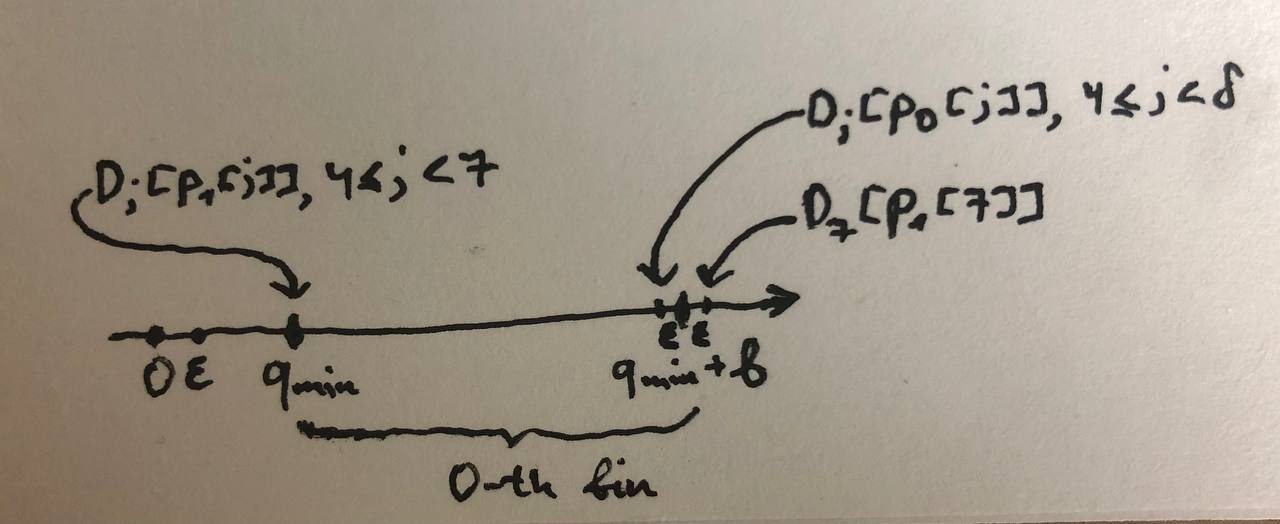 D_j[p_0[j]], 4≤j<8
D_j[p_1[j]], 4≤j<7
D_7[p_1[7]]
0 ε q_min ε ε
q_min + b
0-th bin